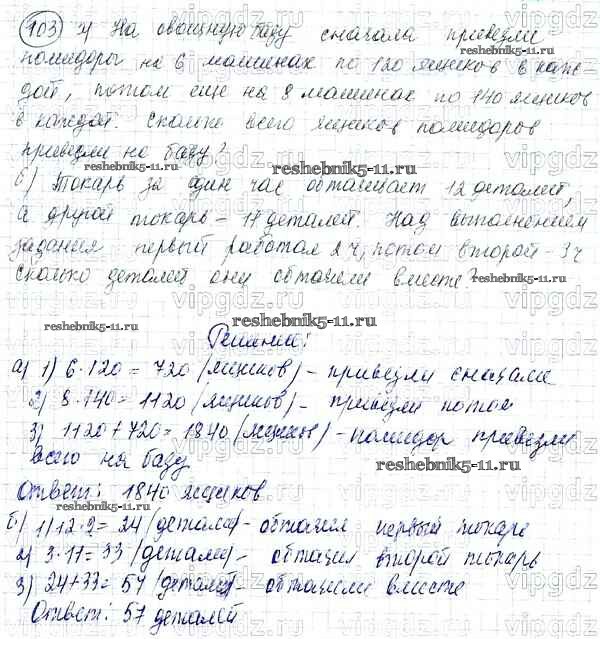 103 а) На овощную базу сначала привезли
помидоры на 6 машинах по 120 ящиков в каж-
дой, потом еще на 8 машинах по 140 ящиков
в каждой. Сколько всего ящиков помидоров
привезли на базу?
reshebnik5-11.ru
б) Токарь за один час обтачивает 12 деталей,
а другой токарь – 11 деталей. Над выполнением
задания первый работал 2 ч, потом второй – 3 ч
сколько деталей они обточили вместе?
reshebnik5-11.ru
reshebnik5-11.ru
Решение:
а) 1) 6·120 = 720 (ящиков) – привезли сначала
2) 8·140 = 1120 (ящиков) – привезли потом
3) 1120+720 = 1840 (ящиков) – помидор привезли
всего на базу
reshebnik5-11.ru
Ответ: 1840 ящиков
б) 1) 12·2 = 24 (детали) – обточил первый токарь
2) 3·11 = 33 (детали) – обточил второй токарь
3) 24+33 = 57 (деталей) – обточили вместе
Ответ: 57 деталей
reshebnik5-11.ru
vipgdz.ru